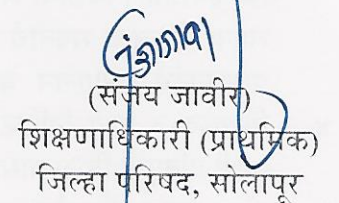 (संजय जावीर)
शिक्षणाधिकारी (प्राथमिक)
जिल्हा परिषद, सोलापूर